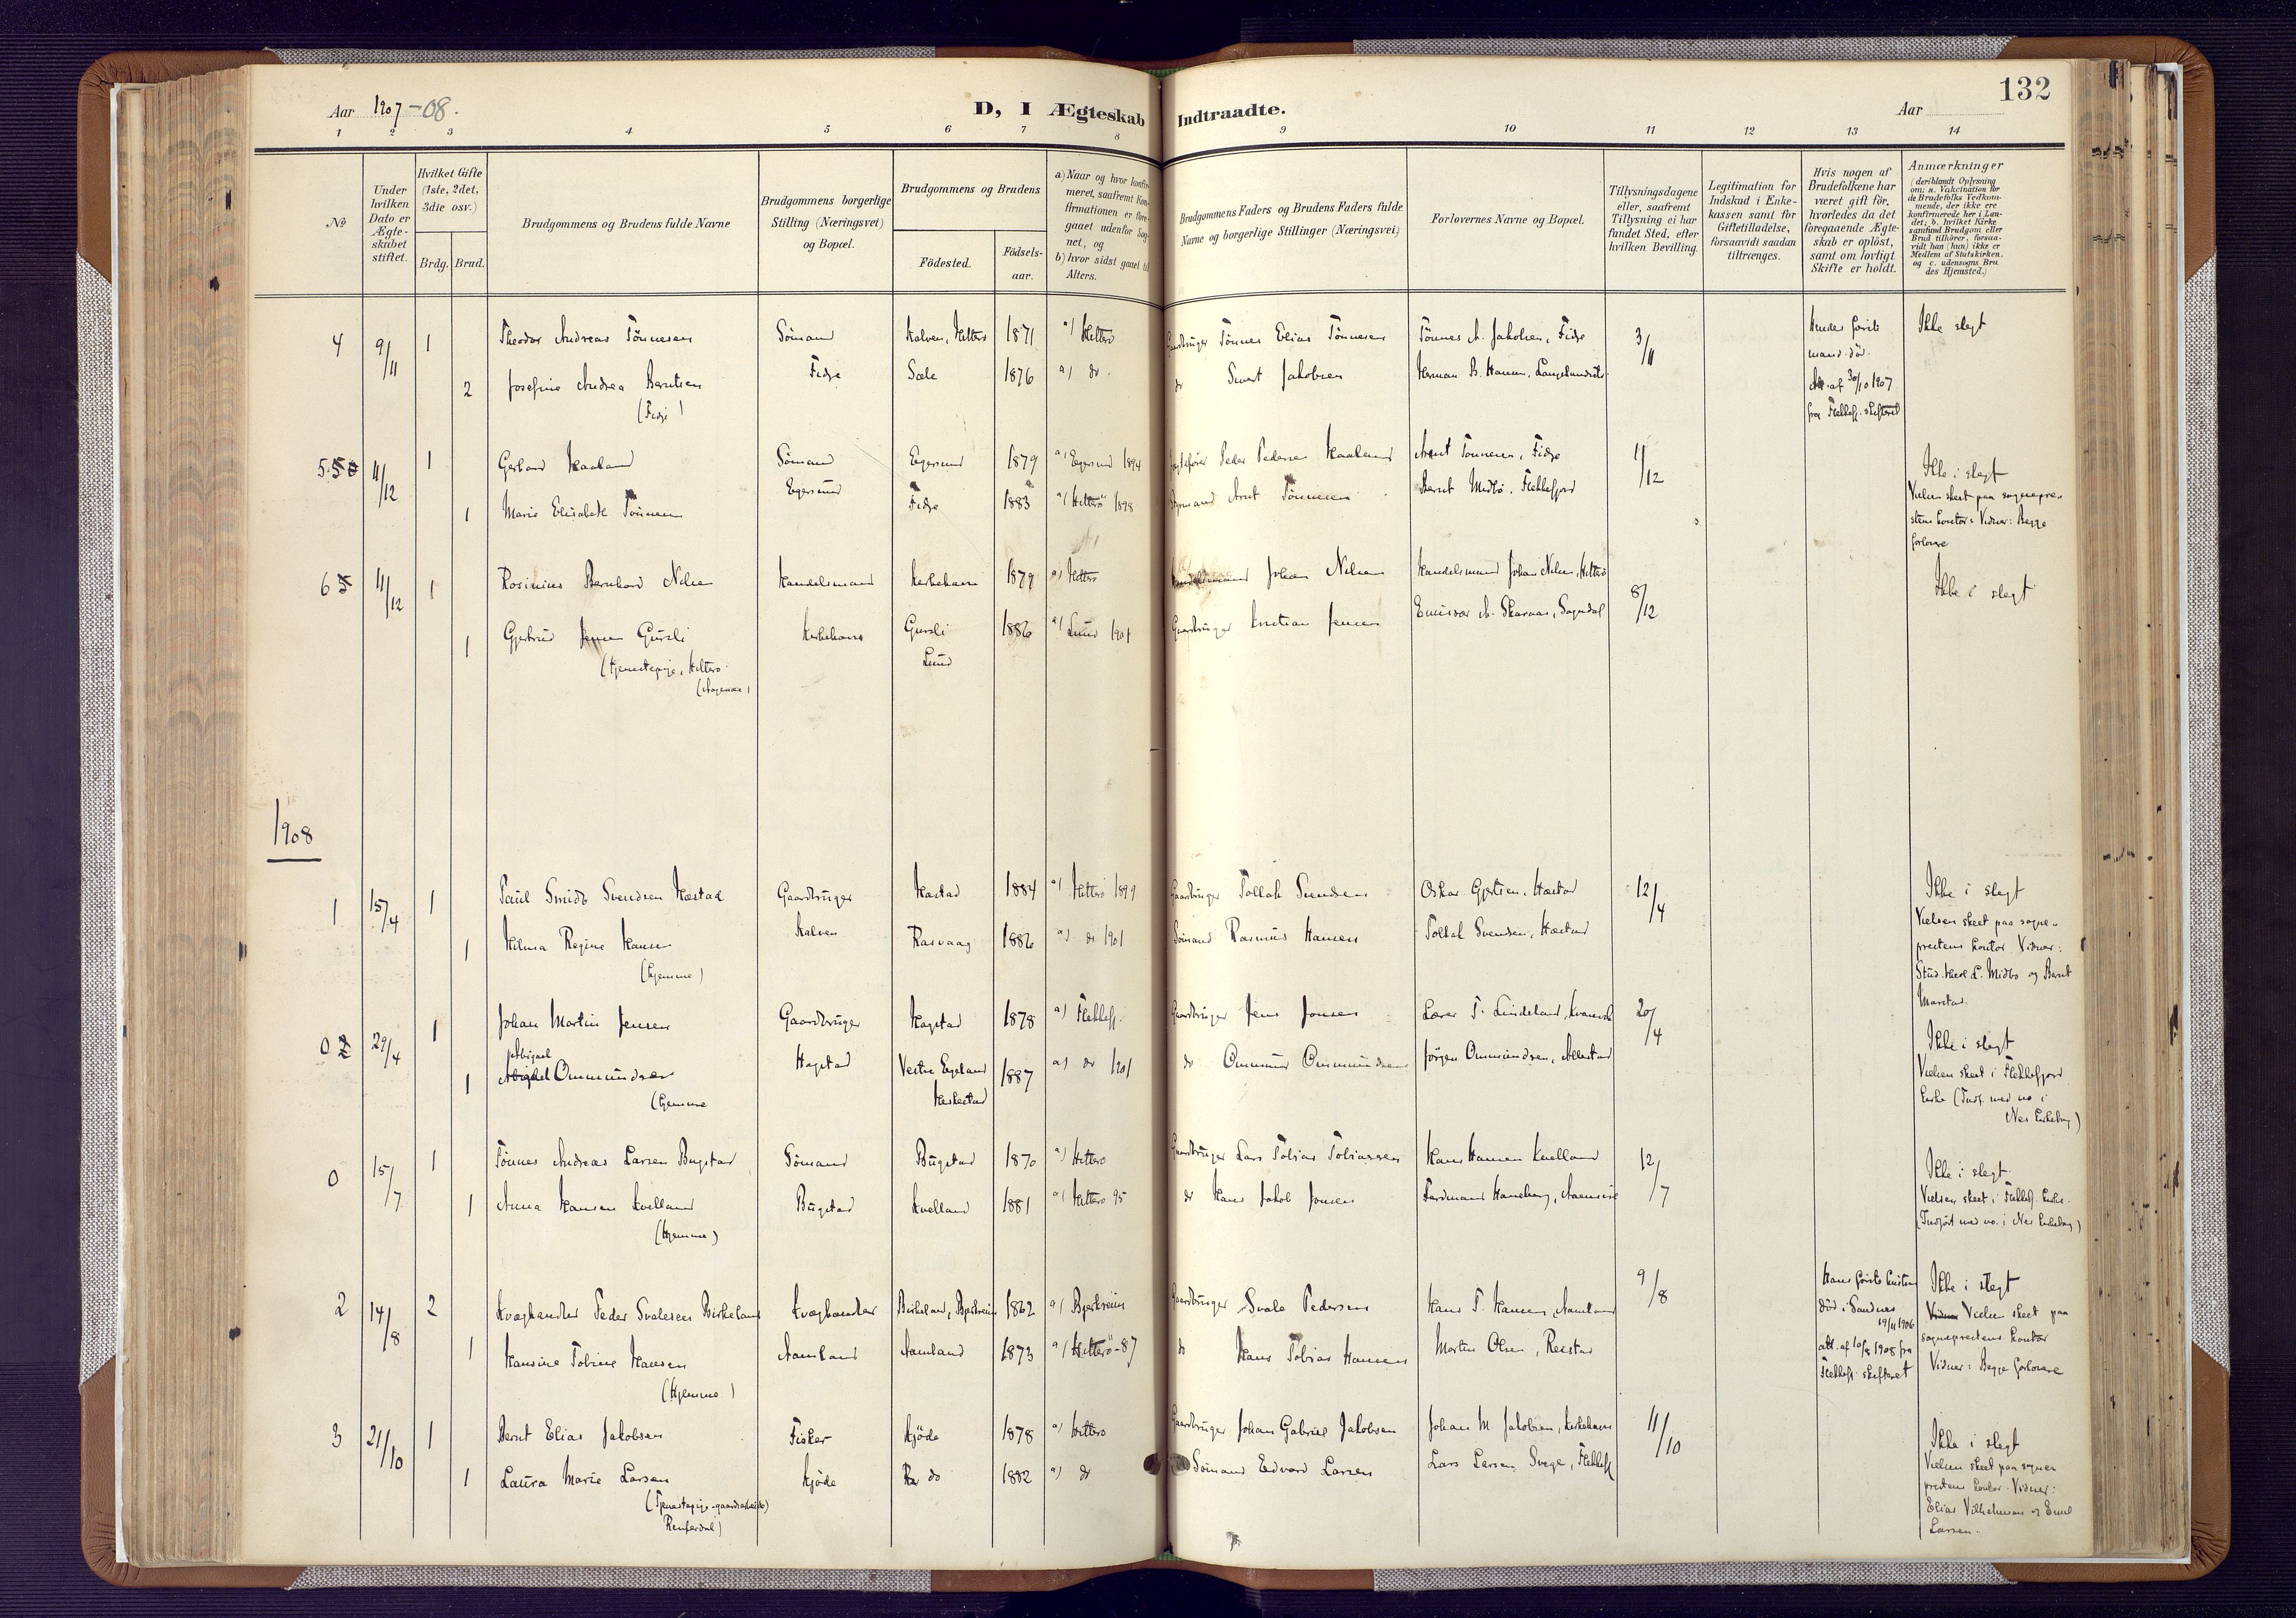 Aar 1907-08.
D, I Ægteskab Indtraadte.
Aar
132
1 2 3 4 5 6 7 8 9 10 11 12 13 14
No
Under hvilken Dato er Ægteskabet stiftet.
Hvilket Gifte (1ste, 2det, 3die osv.)
Brdg. Brud.
Brudgommens og Brudens fulde Navne
Brudgommens borgerlige Stilling (Næringsvei) og Bopæl.
Brudgommens og Brudens
Födested.
Födsels-aar.
a) Naar og hvor konfirmeret, saafremt Konfirmationen er foregaaet udenfor Sognet, og
b) hvor sidst gaaet til Alters.
Brudgommens Faders og Brudens Faders fulde Navne og borgerlige Stillinger (Næringsvei)
Forlovernes Navne og Bopæl.
Tillysningsdagene eller, saafremt Tillysning ei har fundet Sted, efter hvilken Bevilling.
Legitimation for Indskud i Enkekassen samt for Giftetilladelse, forsaavidt saadan tiltrænges.
Hvis nogen af Brudefolkene har været gift för, hvorledes da det foregaaende Ægteskab er oplöst, samt om lovligt Skifte er holdt.
Anmærkninger
(deriblandt Oplysning om: a. Vakcination for de Brudefolks Vedkommende, der ikke ere konfirmerede her i Landet; b. hvilket Kirkesamfund Brudgom eller Brud tilhörer, forsaavidt han (hun) ikke er Medlem af Statskirken. og c. udensogns Bru des Hjemsted.)
4 9/11 1 Theodor Andreas Tönnesen Sömand Kalven, Hitterö 1871 a) Hitterö Gaardbruger Tönnes Elias Tönnesen Tönnes A. Jakobsen, Fidje 3/11 Ikke slegt
2 Josefine Andrea Berntsen Fidje Sæle 1876 a) do. do Sivert Jakobsen Herman B. Hansen,
(Fidje)
mand död.
af 30/10 1907
fra Flekkefj. skifteret
5 11/12 1 Gerhard Kaaland Sömand Egersund 1879 a) Egersund 1894 Peder Pedersen Kaaland Arnt Tönnesen, Fidje 11/12 Ikke i slegt
1 Marie Elisabeth Tönnesen Egersund Fidje 1883 a) Hitterö 1898 Styrmand Arnt Tönnesen Bernt Midbö, Flekkefjord
Vielsen skeet paa sognepre-
stens kontor. Vidner: Begge
forlovere
6 11/12 1 Rosinius Bernhard Nilsen Handelsmand Kirkehavn 1879 a) Hitterö Handelsmand Johan Nilsen Handelsmand Johan Nilsen, Hitterö 8/12 Ikke i slegt
1 Gjertrud Jensen Gursli Kirkehavn Gursli 1886 a) Lund 1901 Gaardbruger Kristian Jensen Emissær A. Skaraas, Sogndal
(Tjenestepige, Hitterö Lund
1908
1 15/4 1 Paul Smidt Svendsen Hæstad Gaardbruger Hæstad 1884 a) Hitterö 1899 Gaardbruger Tollak Svendsen Oskar Gjertsen, Hæstad 12/4 Ikke i slegt
1 Hilma Regine Hansen Kalven Rasvaag 1886 a) do 1901 Sömand Rasmus Hansen Tollak Svendsen, Hæstad
(hjemme)
Vielsen skeet paa sogne-
prestens kontor. Vidner:
Stud. theol L. Midbö og Bernt
0 29/4 1 Johan Martin Jensen Gaardbruger Hagstad 1878 a) Flekkefj. Gaardbruger Jens Jonsen Lærer T. Lindeland, 20/4 Ikke i slegt
1 Abigael Ommundsen Hagstad Vestre Egeland 1887 a) do 1901 do Ommund Ommundsen Jörgen Ommundsen,
(hjemme Heskestad
Vielsen skeet i Flekkefjord
kirke (Indf. med no i
Nes kirkebog)
0 15/7 1 Tönnes Andreas Larsen Bugstad Sömand Bugstad 1870 a) Hitterö Gaardbruger Lars Tobias Tobiassen Hans Hansen Kvelland 12/7 Ikke i slegt.
1 Anna Hansen Kvelland Bugstad Kvelland 1881 a) Hitterö 95 do Hans Jakob Jonsen Ferdinand Haneberg,
(hjemme)
Vielsen skeet i Flekkefj. kirke.
(Indfört med no. i Nes kirkebog)
2 14/8 2 Kvæghandler Peder Svalesen Birkeland Kvæghandler Birkeland, Bjerkreim 1862 a) Bjerkreim Gaardbruger Svale Pedersen Hans T. Hansen, Aamland 9/8 Ikke i slegt
1 Hansine Tobine Hansen Aamland Aamland 1873 a) Hitterö-87 do Hans Tobias Hansen Morten Olsen, Reestad
(hjemme)
Hans förste hustru
död i Sandnes
19/11 1906
att. af 10/8 1908 fra
Flekkefj. skifteret
Vielsen skeet paa
sogneprestens kontor
Vidner: Begge forlovere
3 21/10 1 Bernt Elias Jakobsen Fisker Kjöde 1878 a) Hitterö Gaardbruger Johan Gabriel Jakobsen Johan M. Jakobsen, Kirkehavn 11/10 Ikke i slegt
1 Laura Marie Larsen Kjöde do 1882 a) do Sömand Edvard Larsen Lars Larsen Svege, Flekkefj
(Tjenestepige-gaardsarbeide)
Vielsen skeet paa sogne-
prestens kontor. Vidner:
Elias Vilhelmsen og Emil
Larsen.